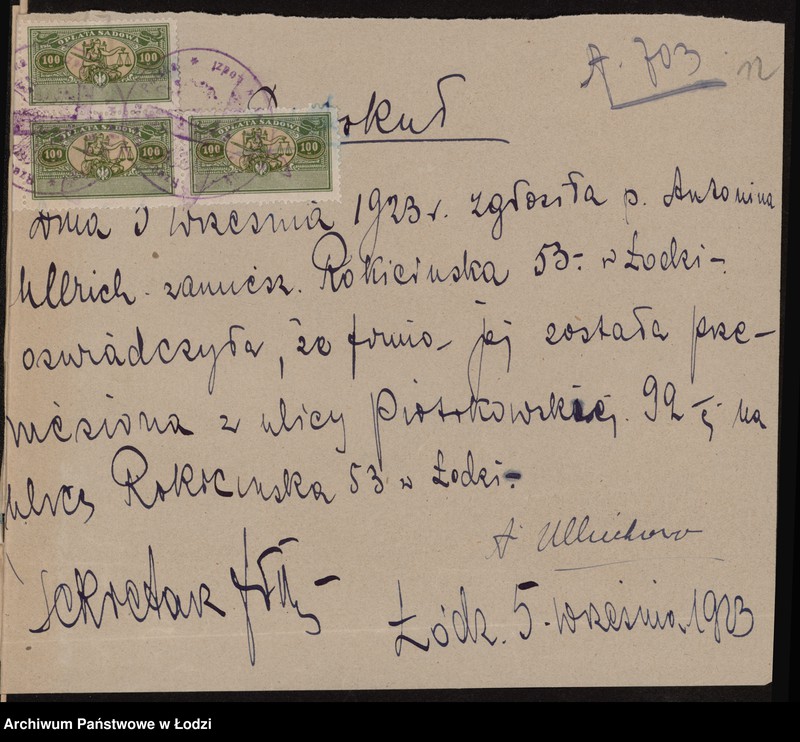 OPŁATA SĄDOWA
100 100
OPŁATA SĄDOWA
100 100
OPŁATA SĄDOWA
100 100
A. 703
12
Dnia 5 września 1923 r. zgłosiła p. Antonina
Ullrich zamieszk. Rokicinska 53 w Łodzi
oswiadczyła, że firma jej została prze-
niesiona z ulicy Piotrkowskiej 92 na
ulicę Rokicinska 53 w Łodzi.
A Ullrichowa
Sekretarz
Łódz. 5. września 1923
Archiwum Państwowe w Łodzi